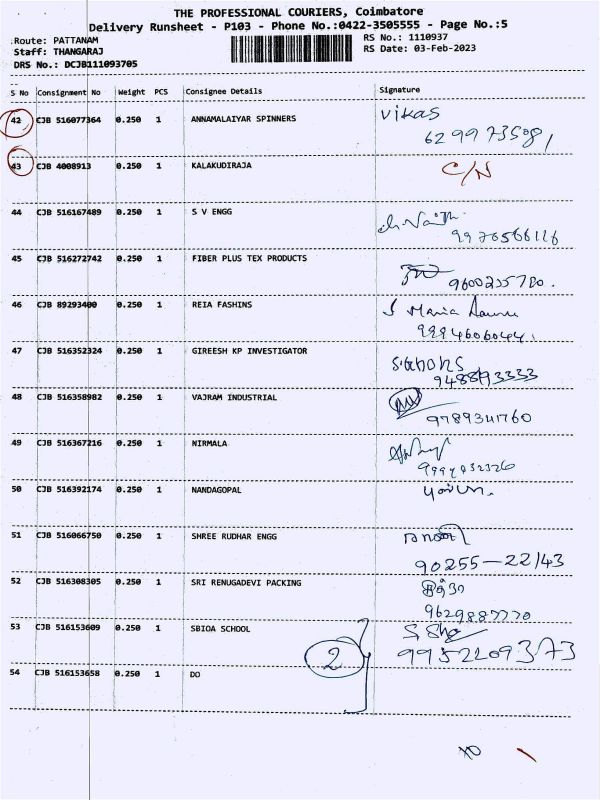 THE PROFESSIONAL COURIERS, Coimbatore
Delivery Runsheet - P103 - Phone No.:0422-3505555 - Page No.:5
Route: PATTANAM RS No.: 1110937
Staff: THANGARAJ RS Date: 03-Feb-2023
DRS No.: DCJB111093705
S No Consignment No Weight PCS Consignee Details Signature
42 CJB 516077364 0.250 1 ANNAMALAIYAR SPINNERS Vikas
43 CJB 4008913 0.250 1 KALAKUDIRAJA C/N
44 CJB 516167489 0.250 1 S V ENGG
9976566116
45 CJB 516272742 0.250 1 FIBER PLUS TEX PRODUCTS
9600235780.
46 CJB 89293400 0.250 1 REIA FASHINS S Maria
9994606044.
47 CJB 516352324 0.250 1 GIREESH KP INVESTIGATOR
48 CJB 516358982 0.250 1 VAJRAM INDUSTRIAL
9789341760
49 CJB 516367216 0.250 1 NIRMALA
50 CJB 516392174 0.250 1 NANDAGOPAL
51 CJB 516066750 0.250 1 SHREE RUDHAR ENGG
90255-22143
52 CJB 516308305 0.250 1 SRI RENUGADEVI PACKING
9629887770
53 CJB 516153609 0.250 1 SBIOA SCHOOL
2 9952209373
54 CJB 516153658 0.250 1 DO